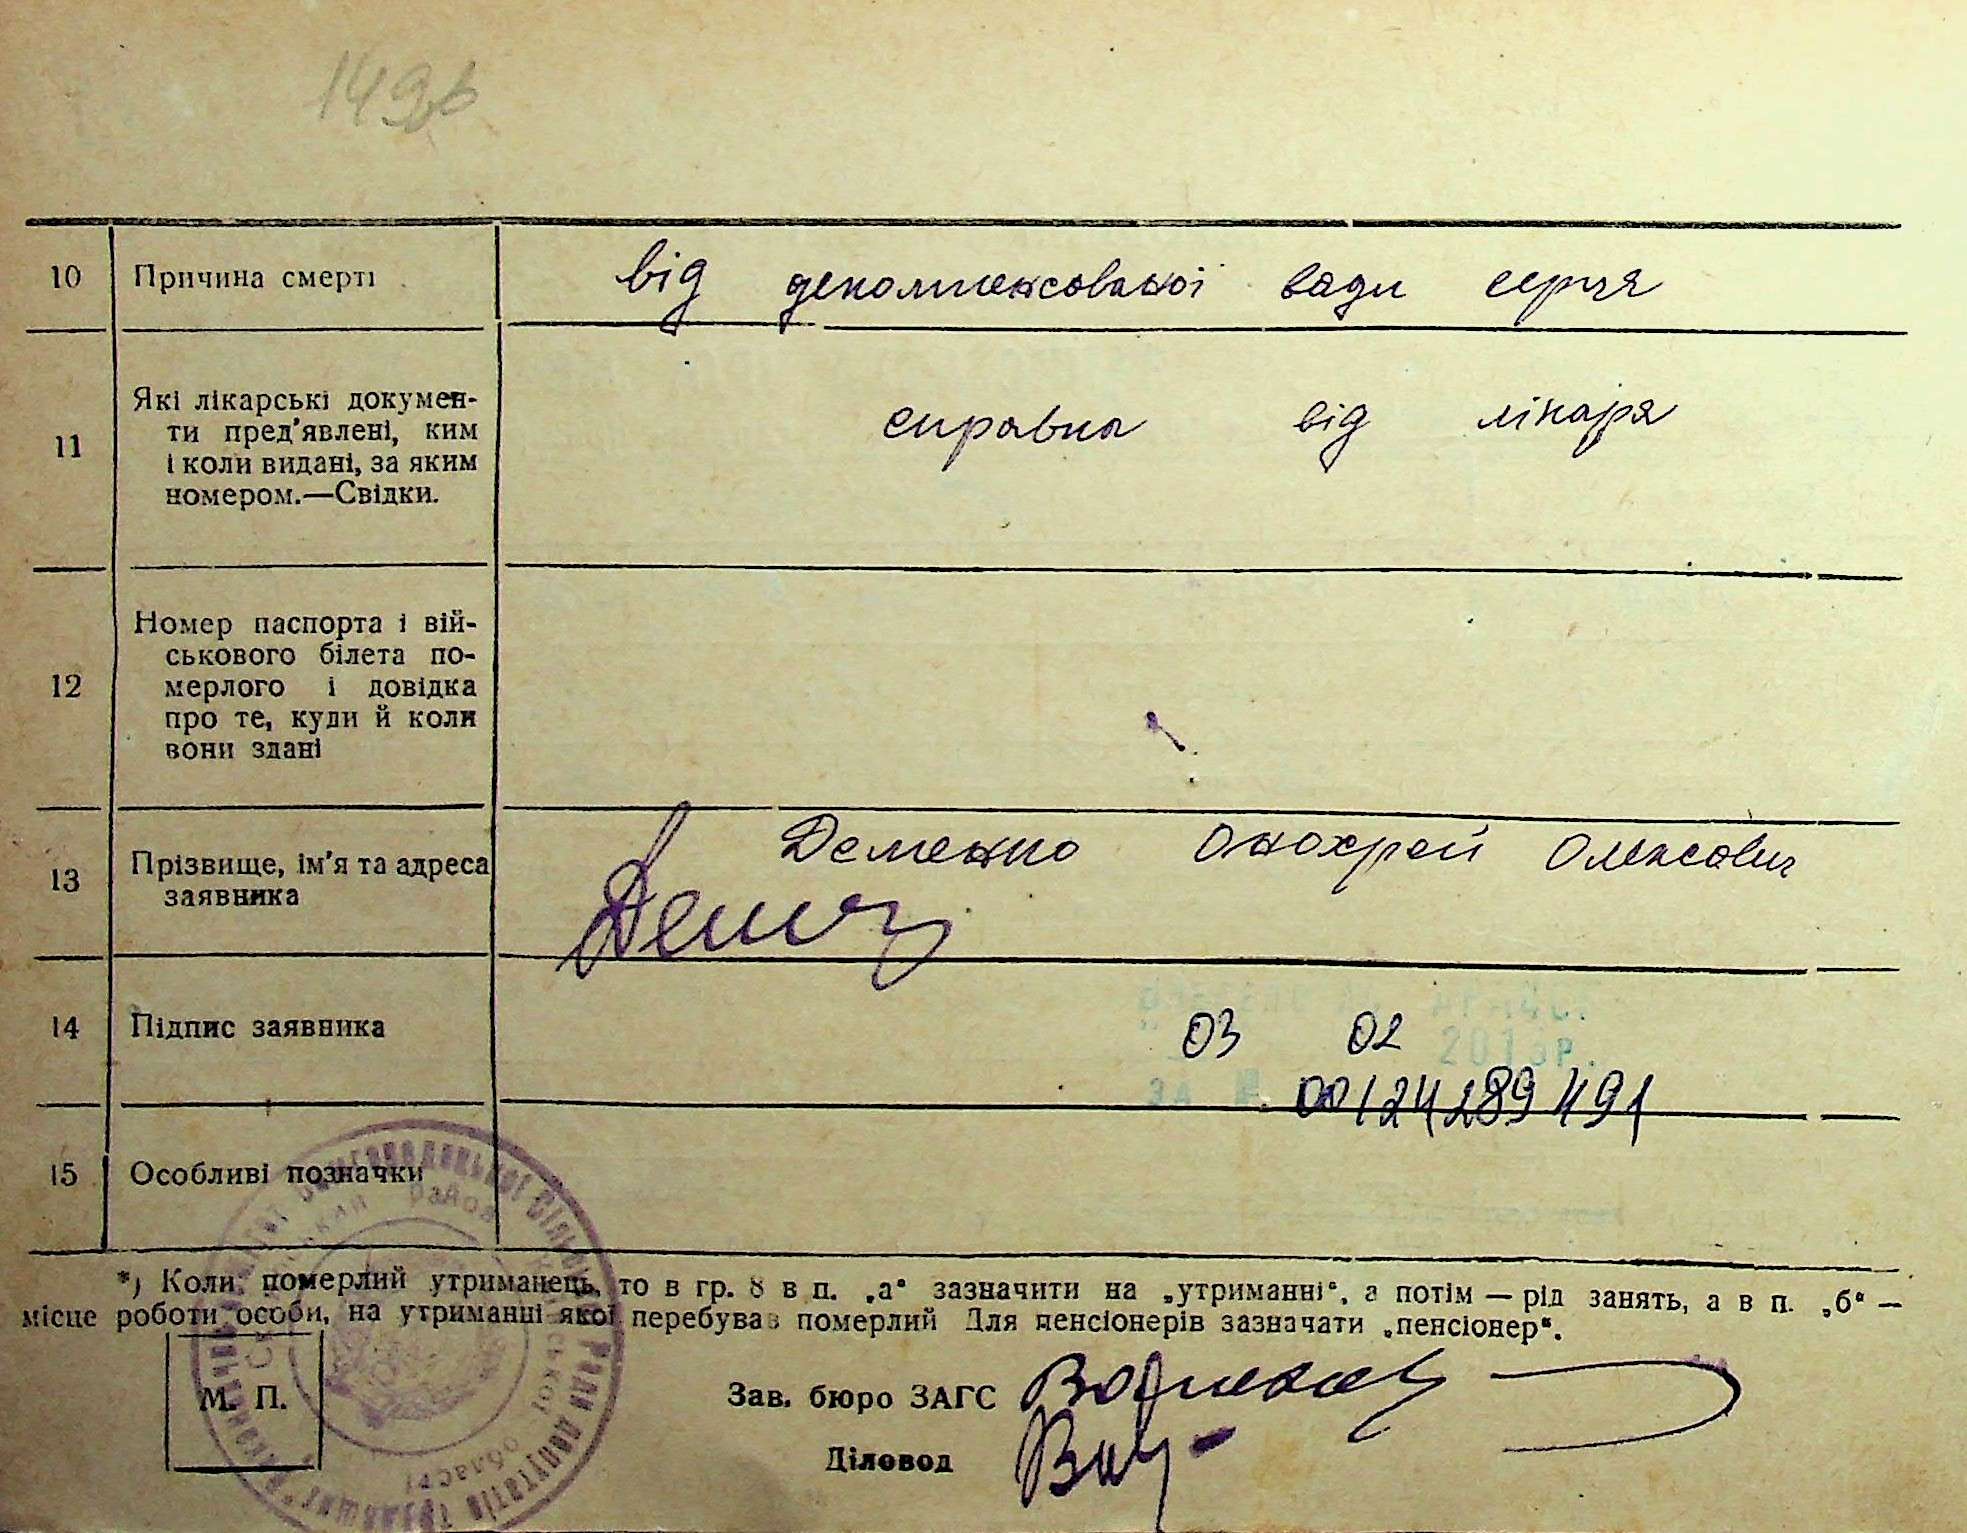 149зв
10 Причина смерті від декомпенсованої вади серця
11 Які лікарські докумен-
ти пред'явлені, ким
і коли видані, за яким
номером.—Свідки.
справка від лікаря
12 Номер паспорта і вій-
ськового білета по-
мерлого і довідка
про те, куди й коли
вони здані
13 Прізвище, ім'я та адреса
заявника
Деменко Онохрей Олексович
14 Підпис заявника
03 02
00124289491
15 Особливі позначки
*) Коли, померлий утриманець, то в гр. 8 в п. „а“ зазначити на „утриманні“, а потім — рід занять, а в п. „б“ —
місце роботи особи, на утриманні якої перебував померлий Для пенсіонерів зазначати „пенсіонер“.
М. П.
Зав. бюро ЗАГС
Діловод
Ради депутатів трудящих
області